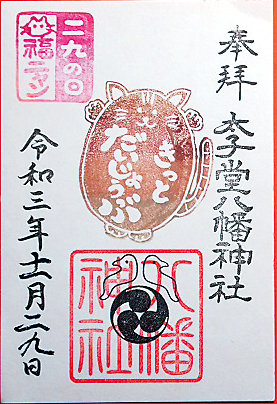 奉拝
太子堂八幡神社
二九の日
福ニャン
きっと
だいじょうぶ
八幡
神社
令和三年十一月二九日